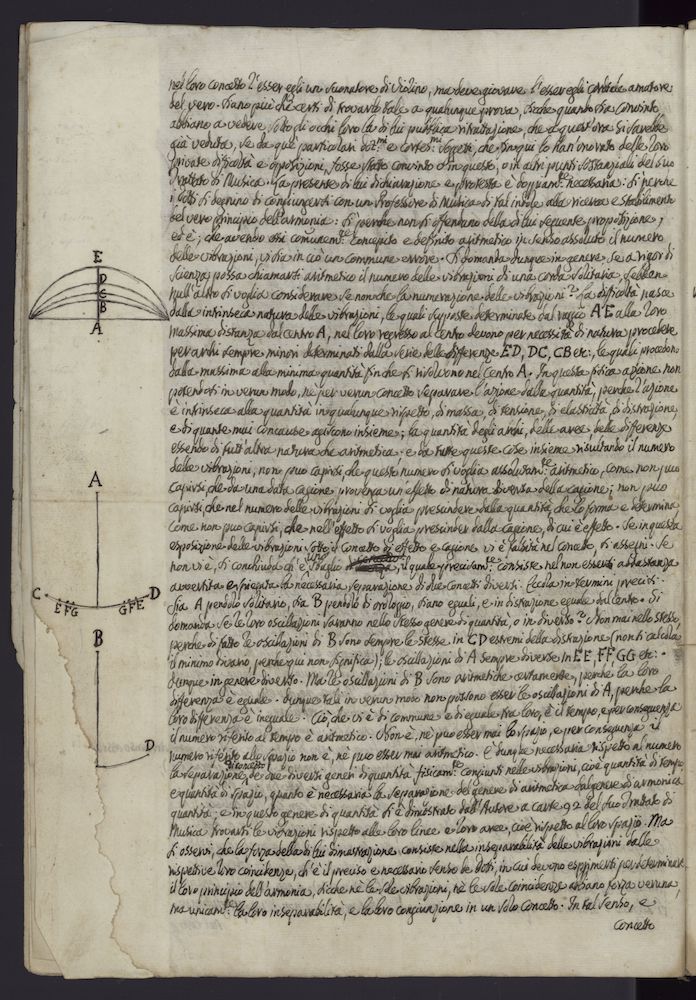 nel loro concetto l'esser egli un suonatore di Violino, ma deve giovare l'esser egli cordiale amatore
del vero. Siano pur che certi di trovarlo tale a qualunque prova, sicche quanto sia convinto
abbiano a vedere sotto gli occhi loro la di lui pubblica ritrattazione, che a quest'ora si sarebbe
già veduta, se da que' particolari dot.mi e cortes.mi Sogetti, che sin qui lo han onorato delle loro
private difficoltà e opposizioni, fosse stato convinto o in questo, o in altri punti sostanziali del suo
Trattato di Musica. La presente di lui dichiarazione e protesta è doppiam.te necessaria: sì perche
i Dotti si degnino di congiungersi con un Professore di Musica di tal indole alla ricerca e stabilimento
del vero principio dell'armonia: sì perche non si offendano della di lui seguente proposizione;
ed è; che avendo essi comunem.te concepito e definito aritmetico in senso assoluto il numero
delle vibrazioni, vi sia in ciò un commune errore. Si domanda dunque in genere, se a rigor di
Scienza possa chiamarsi aritmetico il numero delle vibrazioni di una corda solitaria, sebben
null'altro si voglia considerare se non che la numerazione delle vibrazioni? La difficoltà nasce
dalla intrinseca natura delle vibrazioni, le quali supposte determinate dal raggio AE alla loro
massima distanza dal centro A, nel loro regresso al centro devono per necessità di natura procedere
per archi sempre minori determinati dalla serie delle differenze ED, DC, CB etc:, le quali procedono
dalla massima alla minima quantità sin che si risolvono nel Centro A. In questa fisica azione non
potendosi in verun modo, ne per verun concetto separare l'azione dalla quantità, perche l'azione
è intrinseca alla quantità in qualunque rispetto, di massa, di tensione, di elasticità, di distrazione,
e di quante mai concause agiscono insieme; la quantità degli archi, delle aree, delle differenze
essendo di tutt'altra natura che aritmetica: e da tutte queste cose insieme risultando il numero
delle vibrazioni, non può capirsi, che questo numero si voglia assolutam.te aritmetico, come non può
capirsi, che da una data cagione provenga un'effetto di natura diversa della cagione; non può
capirsi, che nel numero delle vibrazioni si voglia prescindere dalla quantità, che lo forma e determina,
come non può capirsi, che nell'effetto si voglia prescinder dalla cagione, di cui è effetto. Se in questa
esposizione delle vibrazioni sotto il concetto di effetto e cagione vi è falsità nel concetto, si assegni. Se
non vi è, si conchiuda ch'è uno sbaglio, il quale precisam.te consiste nel non essersi abbastanza
avvertita e spiegata la necessaria separazione di due concetti diversi. Eccola in termini precisi.
Sia A pendolo solitario, sia B pendolo di orologio, siano eguali, e in distrazione eguale dal centro. Si
domanda se le loro oscillazioni saranno nello stesso genere di quantità, o in diverso? Non mai nello stesso,
perche di fatto le oscillazioni di B sono sempre le stesse in CD estremi della distrazione (non si calcola
il minimo divario, perche qui non significa); le oscillazioni di A sempre diverse in EE, FF, GG etc:
dunque in genere diverso. Ma le oscillazioni di B sono aritmetiche certamente, perche la loro
differenza è eguale. Dunque tali in verun modo non possono esser le oscillazioni di A, perche la
loro differenza è ineguale. Ciò, che vi è di commune e di eguale tra loro, è il tempo, e per conseguenza
il numero riferito al tempo è aritmetico. Non è, ne può esser mai lo spazio, e per conseguenza il
numero riferito allo spazio non è, nè può esser mai aritmetico. È dunque necessaria rispetto al numero
la separazione di concetto de' due diversi generi di quantità fisicam.te congiunti nelle vibrazioni, cioè quantità di tempo,
e quantità di spazio, quanto è necessaria la separazione del genere di aritmetica dal genere di armonica
quantità; e in questo genere di quantità si è dimostrato dall'Autore a carte 92 del suo Trattato di
Musica trovarsi le vibrazioni rispetto alle loro linee, e loro aree, cioè rispetto al loro spazio. Ma
si osservi, che la forza della di lui dimostrazione consiste nella inseparabilità delle vibrazioni dalle
rispettive loro coincidenze, ch'è il preciso e necessario senso de' Dotti, in cui devono esprimersi per determinare
il loro principio dell'armonia, sicche nè le sole vibrazioni, nè le sole coincidenze abbiano forza veruna,
ma unicam.te la loro inseparabilità, e la loro congiunzione in un solo Concetto. In tal senso, e
Concetto
E
D
C
B
A
A
C
D
E F G
G F E
B
D